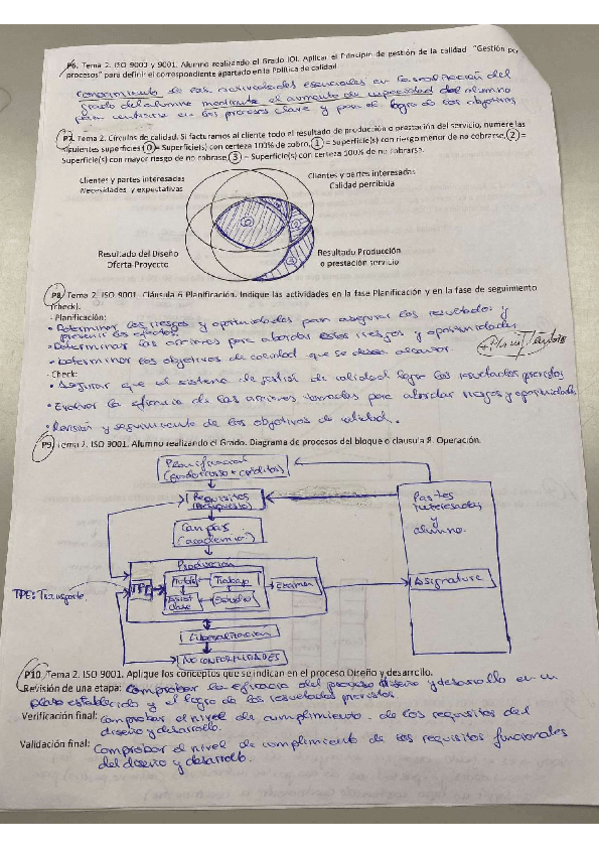 P6. Tema 2. ISO 9000 y 9001. Alumno realizando el Grado IOI. Aplicar el Principio de gestión de la calidad "Gestión por
procesos" para definir el correspondiente apartado en la Política de calidad
Conocimiento de las actividades esenciales en la realización del
grado del alumno mediante el aumento de capacidad del alumno
para centrarse en los procesos clave y para el logro de los objetivos
P7. Tema 2. Círculos de calidad. Si facturamos al cliente todo el resultado de producción o prestación del servicio, numere las
siguientes superficies 0 = Superficie(s) con certeza 100% de cobro, 1 = Superficie(s) con riesgo menor de no cobrarse, 2 =
Superficie(s) con mayor riesgo de no cobrase, 3 = Superficie(s) con certeza 100% de no cobrarse.
Clientes y partes interesadas
Necesidades y expectativas
Clientes y partes interesadas
Calidad percibida
Resultado del Diseño
Oferta Proyecto
Resultado Producción
o prestación servicio
P8. Tema 2. ISO 9001. Cláusula 6 Planificación. Indique las actividades en la fase Planificación y en la fase de seguimiento
(check).
- Planificación:
• Determinar los riesgos y oportunidades para asegurar los resultados y
prevenir los efectos
• Determinar las acciones para abordar estos riesgos y oportunidades
• Determinar los objetivos de calidad que se desea alcanzar
- Check:
• Asegurar que el sistema de gestión de calidad logra los resultados previstos
• Evaluar la eficacia de las acciones tomadas para abordar riesgos y oportunidades
• Revisión y seguimiento de los objetivos de calidad.
P9 Tema 2. ISO 9001. Alumno realizando el Grado. Diagrama de procesos del bloque o clausula 8. Operación.
Planificación
(grado curso + créditos)
Requisitos
(presupuesto)
Compras
(academia)
Partes
interesadas
y
alumno.
Producción
TPE
Trabajo
Asist
clase
Estudio
Examen
Asignatura
TPE: Transporte
Liberalización
NO CONFORMIDADES
P10 Tema 2. ISO 9001. Aplique los conceptos que se indican en el proceso Diseño y desarrollo.
Revisión de una etapa: Comprobar la eficacia del proceso diseño y desarrollo en un
plazo establecido y el logro de los resultados previstos
Verificación final: Comprobar el nivel de cumplimiento de los requisitos del
diseño y desarrollo.
Validación final: Comprobar el nivel de cumplimiento de los requisitos funcionales
del diseño y desarrollo.